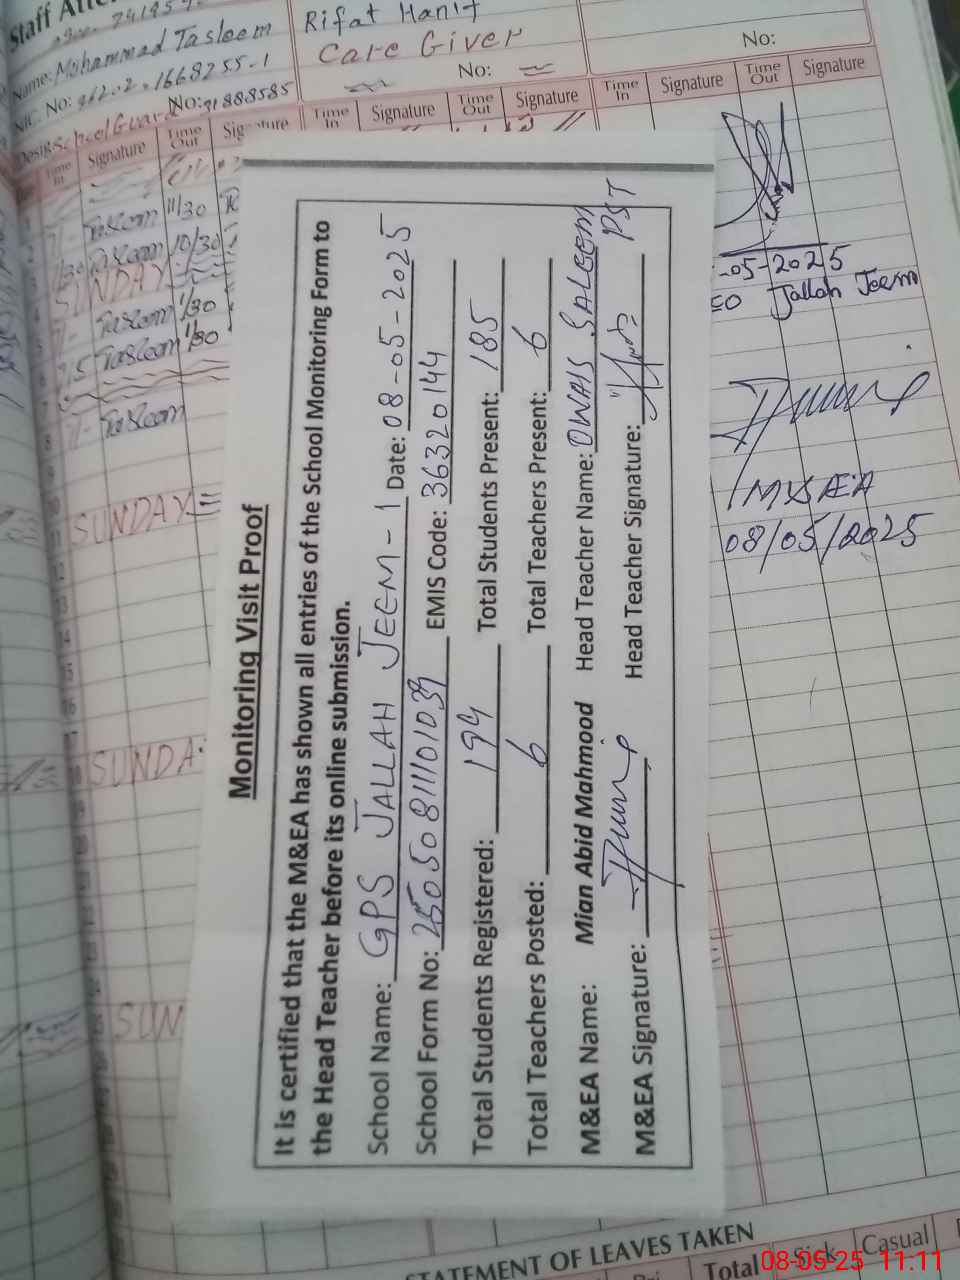 Staff
Name: Mohammad Tasleem
NIC. No: 36202-1668255-1
No: 91888585
Desig School Guard
Rifat Hanif
Care Giver
No:
No:
Time In Signature Time Out Signature Time In Signature Time Out Signature Time In Signature Time Out Signature
Tasleem 11/30
Tasleem 10/30
SUNDAY
Tasleem 1/30
7/5 Tasleem 1/30
7/- Tasleem
SUNDAY
SUNDA
SUN
Monitoring Visit Proof
It is certified that the M&EA has shown all entries of the School Monitoring Form to
the Head Teacher before its online submission.
School Name: GPS JALLAH JEEM-1 Date: 08-05-2025
School Form No: 250508111101039 EMIS Code: 36320144
Total Students Registered: 194 Total Students Present: 185
Total Teachers Posted: 6 Total Teachers Present: 6
M&EA Name: Mian Abid Mahmood Head Teacher Name: OWAIS SALEEM PST
M&EA Signature: Head Teacher Signature:
-05-2025
EO Jallah Jeem
M&EA
08/05/2025
STATEMENT OF LEAVES TAKEN
Total Sick Casual
08-05-25 11:11